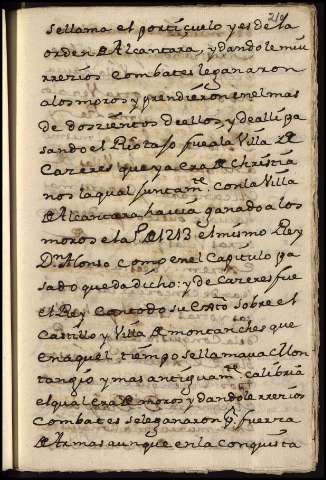 219
sellama el portiçuelo y es de la
orden de Alcantara, y dandole mui
rrezios combates le ganaron
a los moros y prendieron en el mas
de doszientos dellos, y de alli pa
sando el Rio taso fue a la Villa de
Cazeres que ya era de christia
nos la qual juntamte. con la Villa
de Alcantara havia ganado a los
moros el año de 1213 el mismo Rey
Dn. Alonso como en el Capitulo pa
sado queda dicho: y de cazeres fue
el Rey con todo su exto. sobre el
Castillo y Villa de montanches que
en aquel tiempo se llamava Mon
tangio y mas antiguamte. calibria
el qual era de moros y dandole rrezios
combates se le ganaron pr. fuerza
de Armas aunque en la conquista